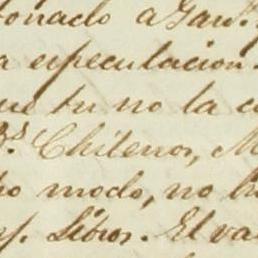 tonado a Gard.
a especulacion.
que tu no la c
Bs. Chilenos, M
ho modo, no h
es. Libros. El va